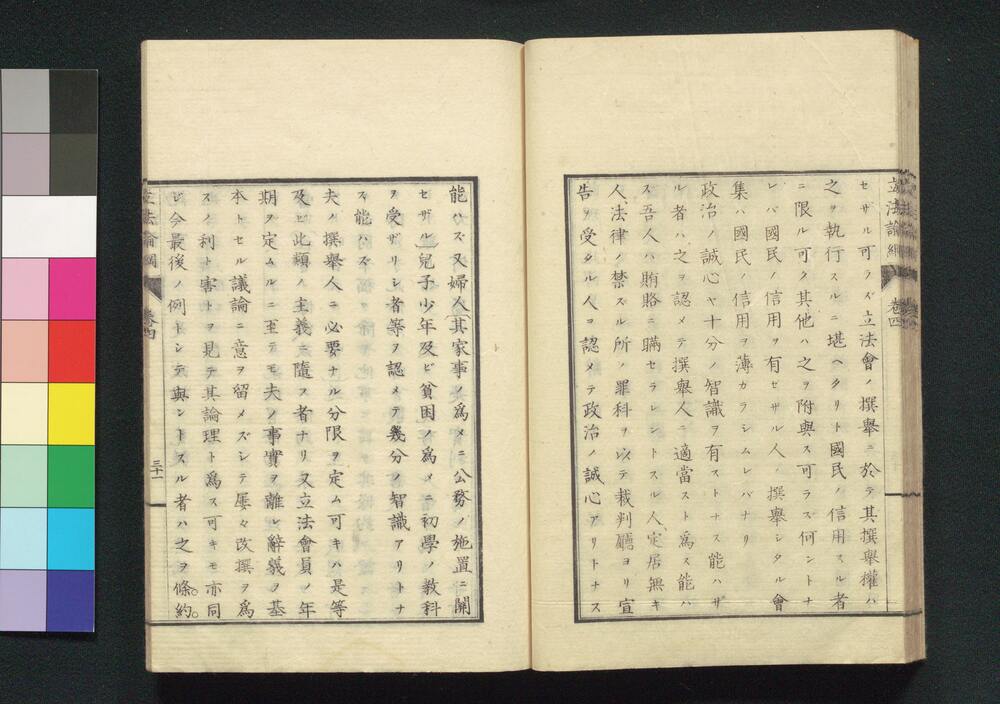 立法論綱 卷四
セザル可ラズ立法會ノ撰擧ニ於テ其撰擧權ハ
之ヲ執行スルニ堪ヘタリト國民ノ信用スル者
ニ限ル可ク其他ハ之ヲ附與ス可ラズ何ントナ
レバ國民ノ信用ヲ有セザル人ノ撰擧シタル會
集ハ國民ノ信用ヲ薄カラシムレバナリ
政治ノ誠心ヤ十分ノ智識ヲ有ストナス能ハザ
ル者ハ之ヲ認メテ撰擧人ニ適當スト爲ス能ハ
ズ吾人ハ賄賂ニ瞞セラレントスル人定居無キ
人法律ノ禁ズル所ノ罪科ヲ以テ裁判廳ヨリ宣
告ヲ受タル人ヲ認メテ政治ノ誠心アリトナス
能ハズ又婦人(其家事ノ爲メニ公務ノ施置ニ關
セザル)兒子少年及ビ貧困ノ爲メニ初學ノ敎科
ヲ受ザリシ者等ヲ認メテ幾分ノ智識アリトナ
ス能ハズ
夫ノ撰擧人ニ必要ナル分限ヲ定ム可キハ是等
及ビ此類ノ主義ニ隨フ者ナリ又立法會員ノ年
期ヲ定ムルニ至テモ夫ノ事實ヲ離レ辭義ヲ基
本トセル議論ニ意ヲ留メズシテ屢々改撰ヲ爲
スノ利ト害トヲ見テ其論理ト爲ス可キモ亦同
ジ今最後ノ例トシテ與ントスル者ハ之ヲ條約。
立法論綱 卷四 三十一